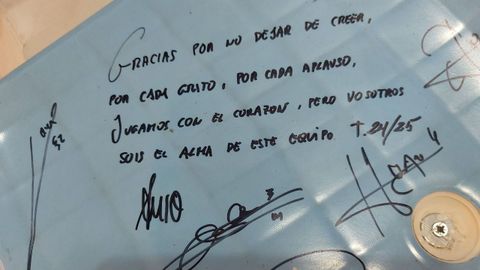 GRACIAS POR NO DEJAR DE CREER,
POR CADA GRITO, POR CADA APLAUSO,
JUGAMOS CON EL CORAZON, PERO VOSOTROS
SOIS EL ALMA DE ESTE EQUIPO T.24/25